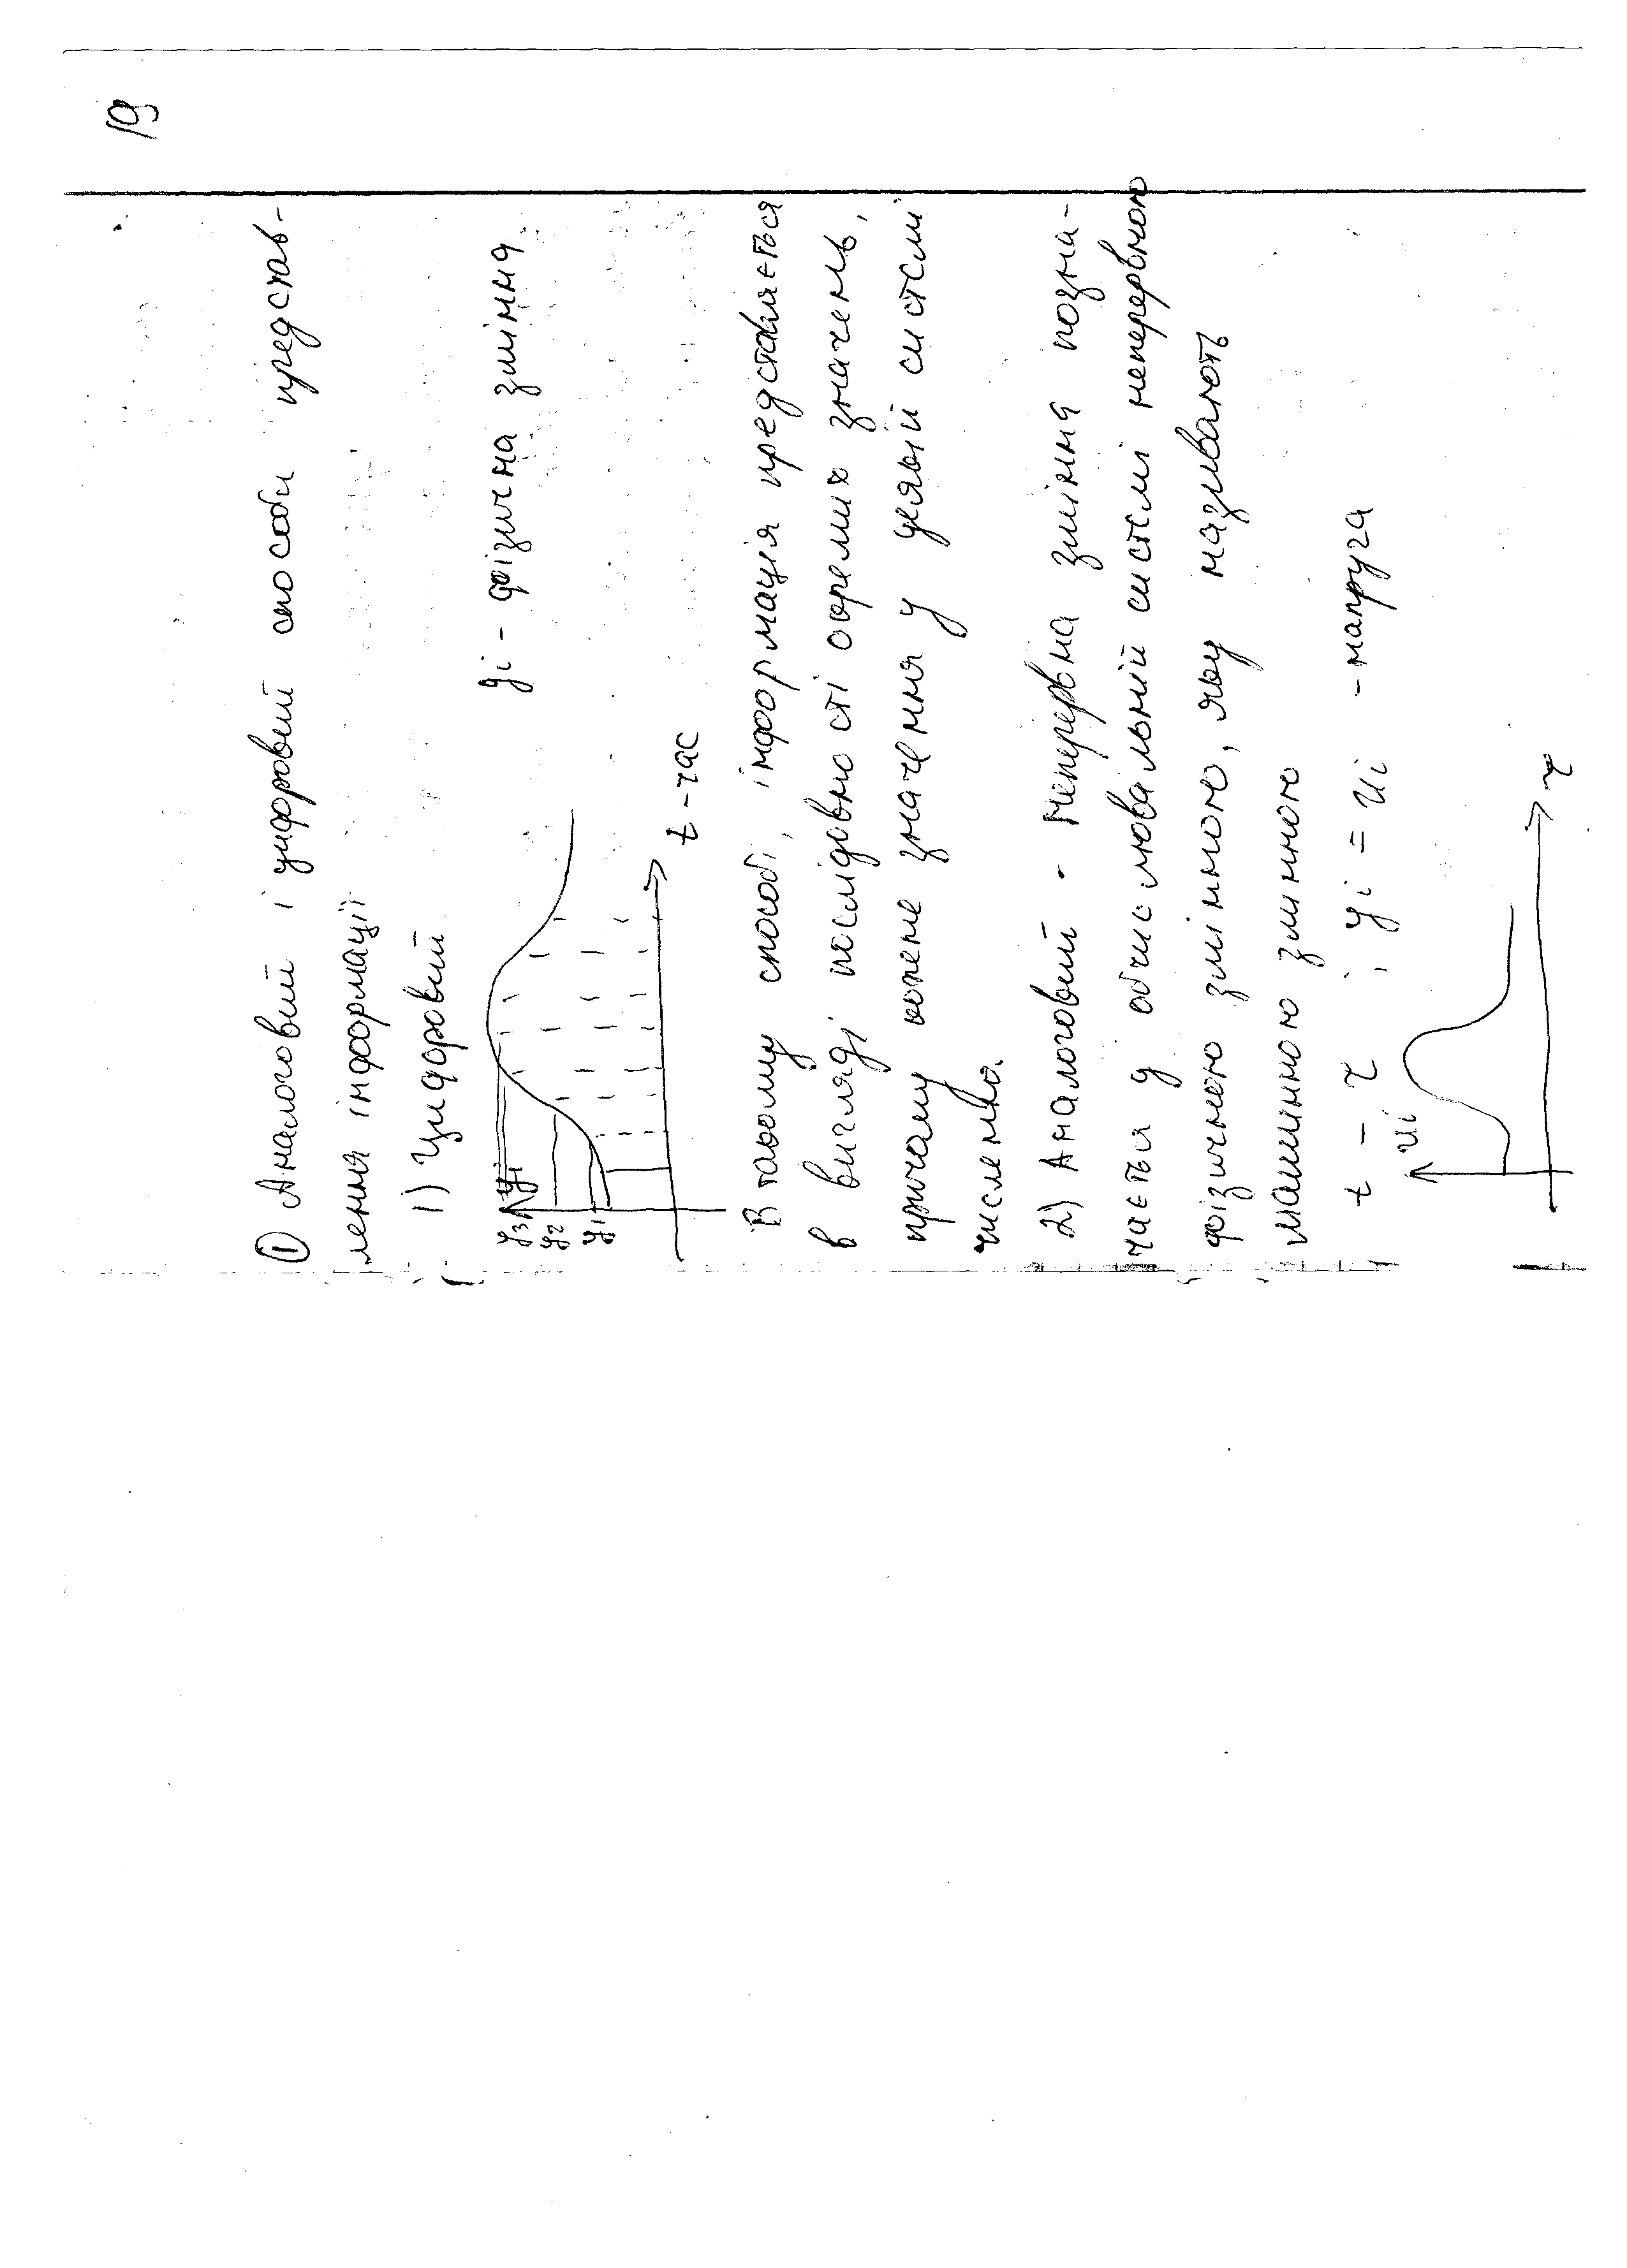 19
① Аналоговий і цифровий способи представ-
лення інформації
1) Цифровий
yi
y3
y2
y1
yi - фізична змінна
t - час
В такому способі, інформація представляється
в вигляді послідовності окремих значень,
причому кожне значення у деякій системі
числено.
2) Аналоговий - неперервна змінна позна-
чається у обчислювальній системі неперервною
фізичною змінною, яку називають
машинною змінною
t - τ ; yi = ui - напруга
ui
τ